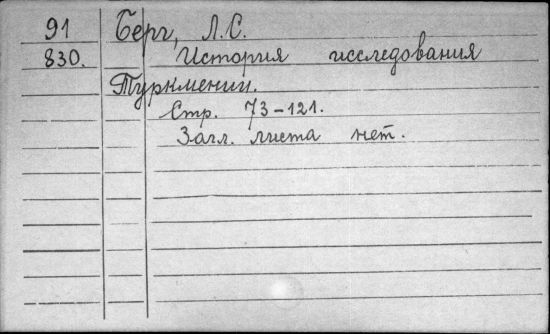 91 Берг, Л.С.
830. История исследования
Туркмении.
Стр. 73-121.
Загл. листа нет.